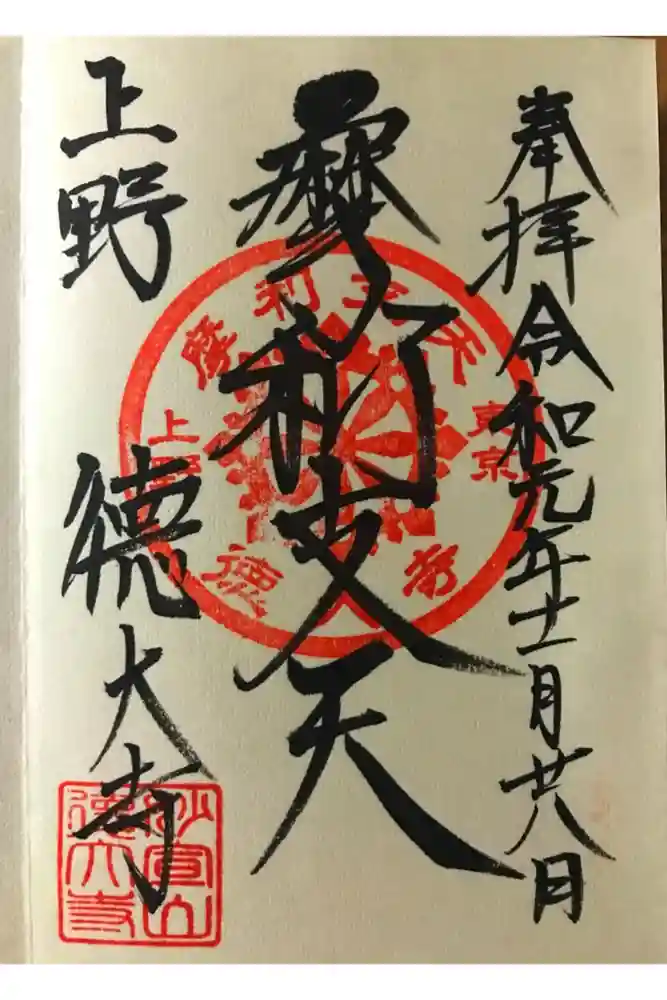 奉拝 令和元年十一月廿八日
摩利支天
上野 徳大寺
摩利支天
東京
上野
徳大寺
妙宣山
徳大寺